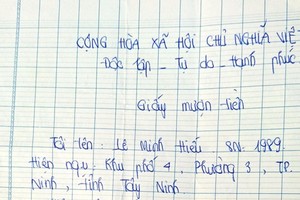 CỘNG HÒA XÃ HỘI CHỦ NGHĨA VIỆ
Độc lập _ Tự do _ Hạnh phúc
Giấy mượn tiền
Tôi tên : Lê Minh Hiếu . SN : 1989.
Hiện ngụ : Khu phố 4 , Phường 3 , TP.
Ninh , Tỉnh Tây Ninh .